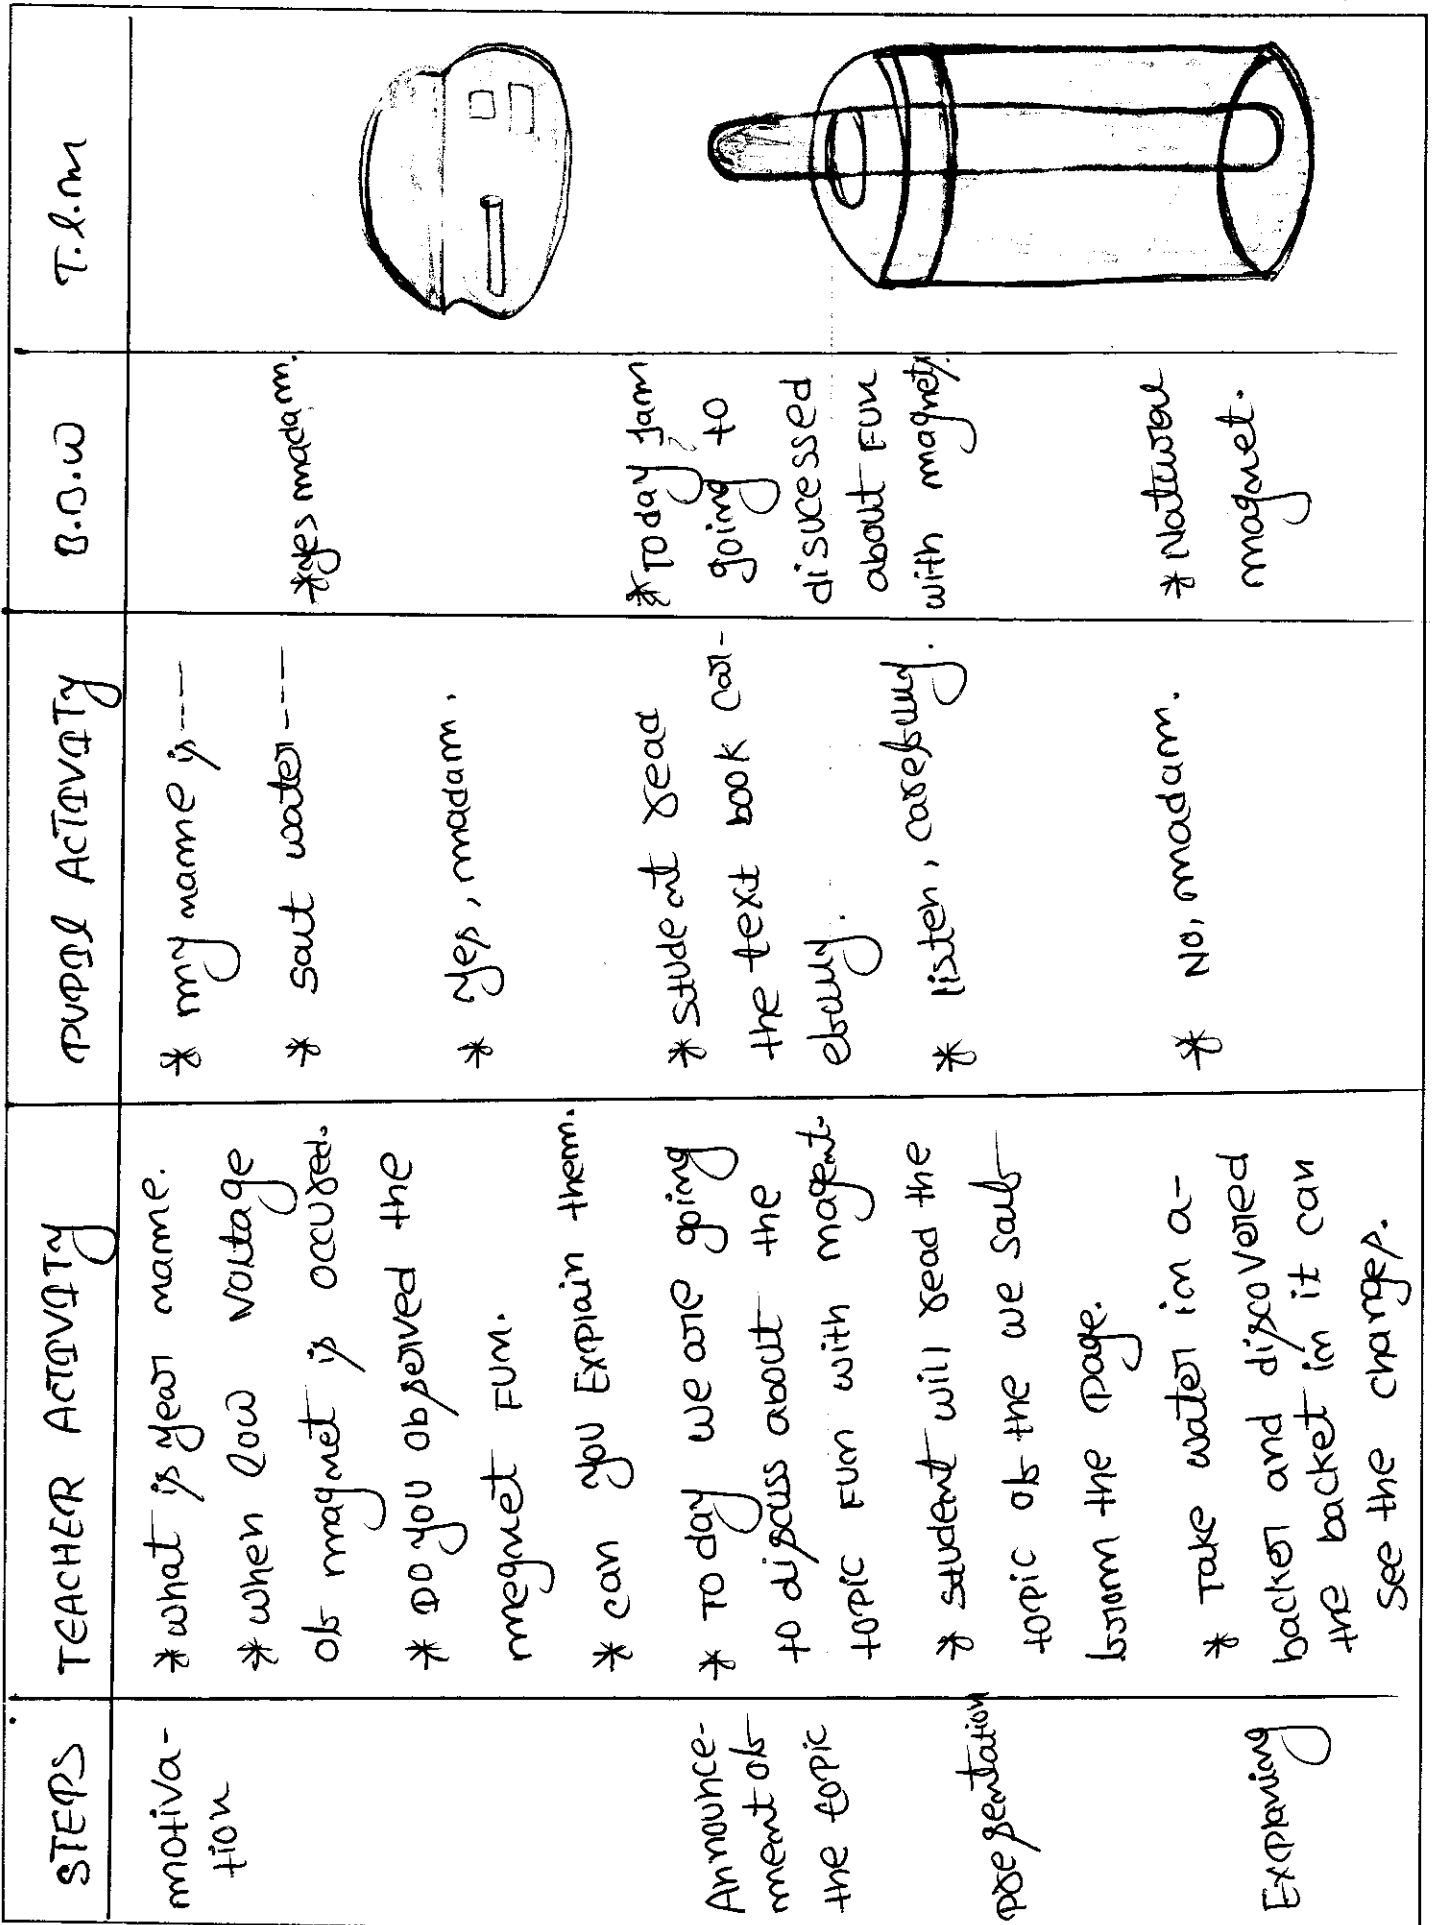 STEPS
TEACHER ACTIVITY
PUPIL ACTIVITY
B.B.W
T.L.M
motiva-
tion
* what is year name.
* when low voltage
of magnet is occured.
* DO you observed the
megnet FUN.
* can you Explain them.
* my name is----
* Saut water----
* yes, madam.
* yes madam.
Announce-
ment of
the topic
* TO day we are going
to discuss about the
topic FUN with magent.
* Student read
the text book car-
efully.
* TO day I am
going to
disucessed
about FUN
with magnets.
presentation
* Student will read the
topic of the we Salf
from the page.
* listen, carefully.
Explaning
* Take water in a-
backer and discovered
the backet in it can
see the changes.
* NO, madam.
* Natural
magnet.